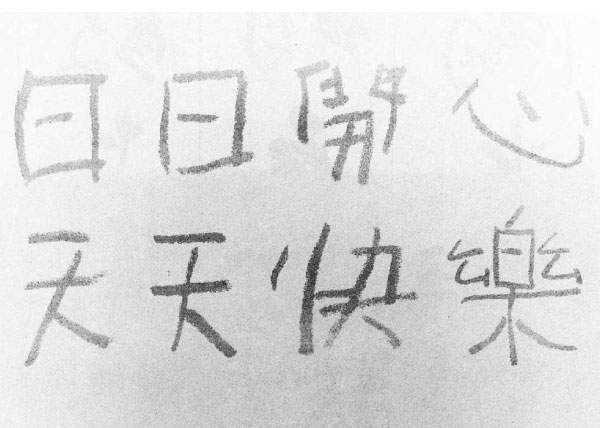 日日開心
天天快樂